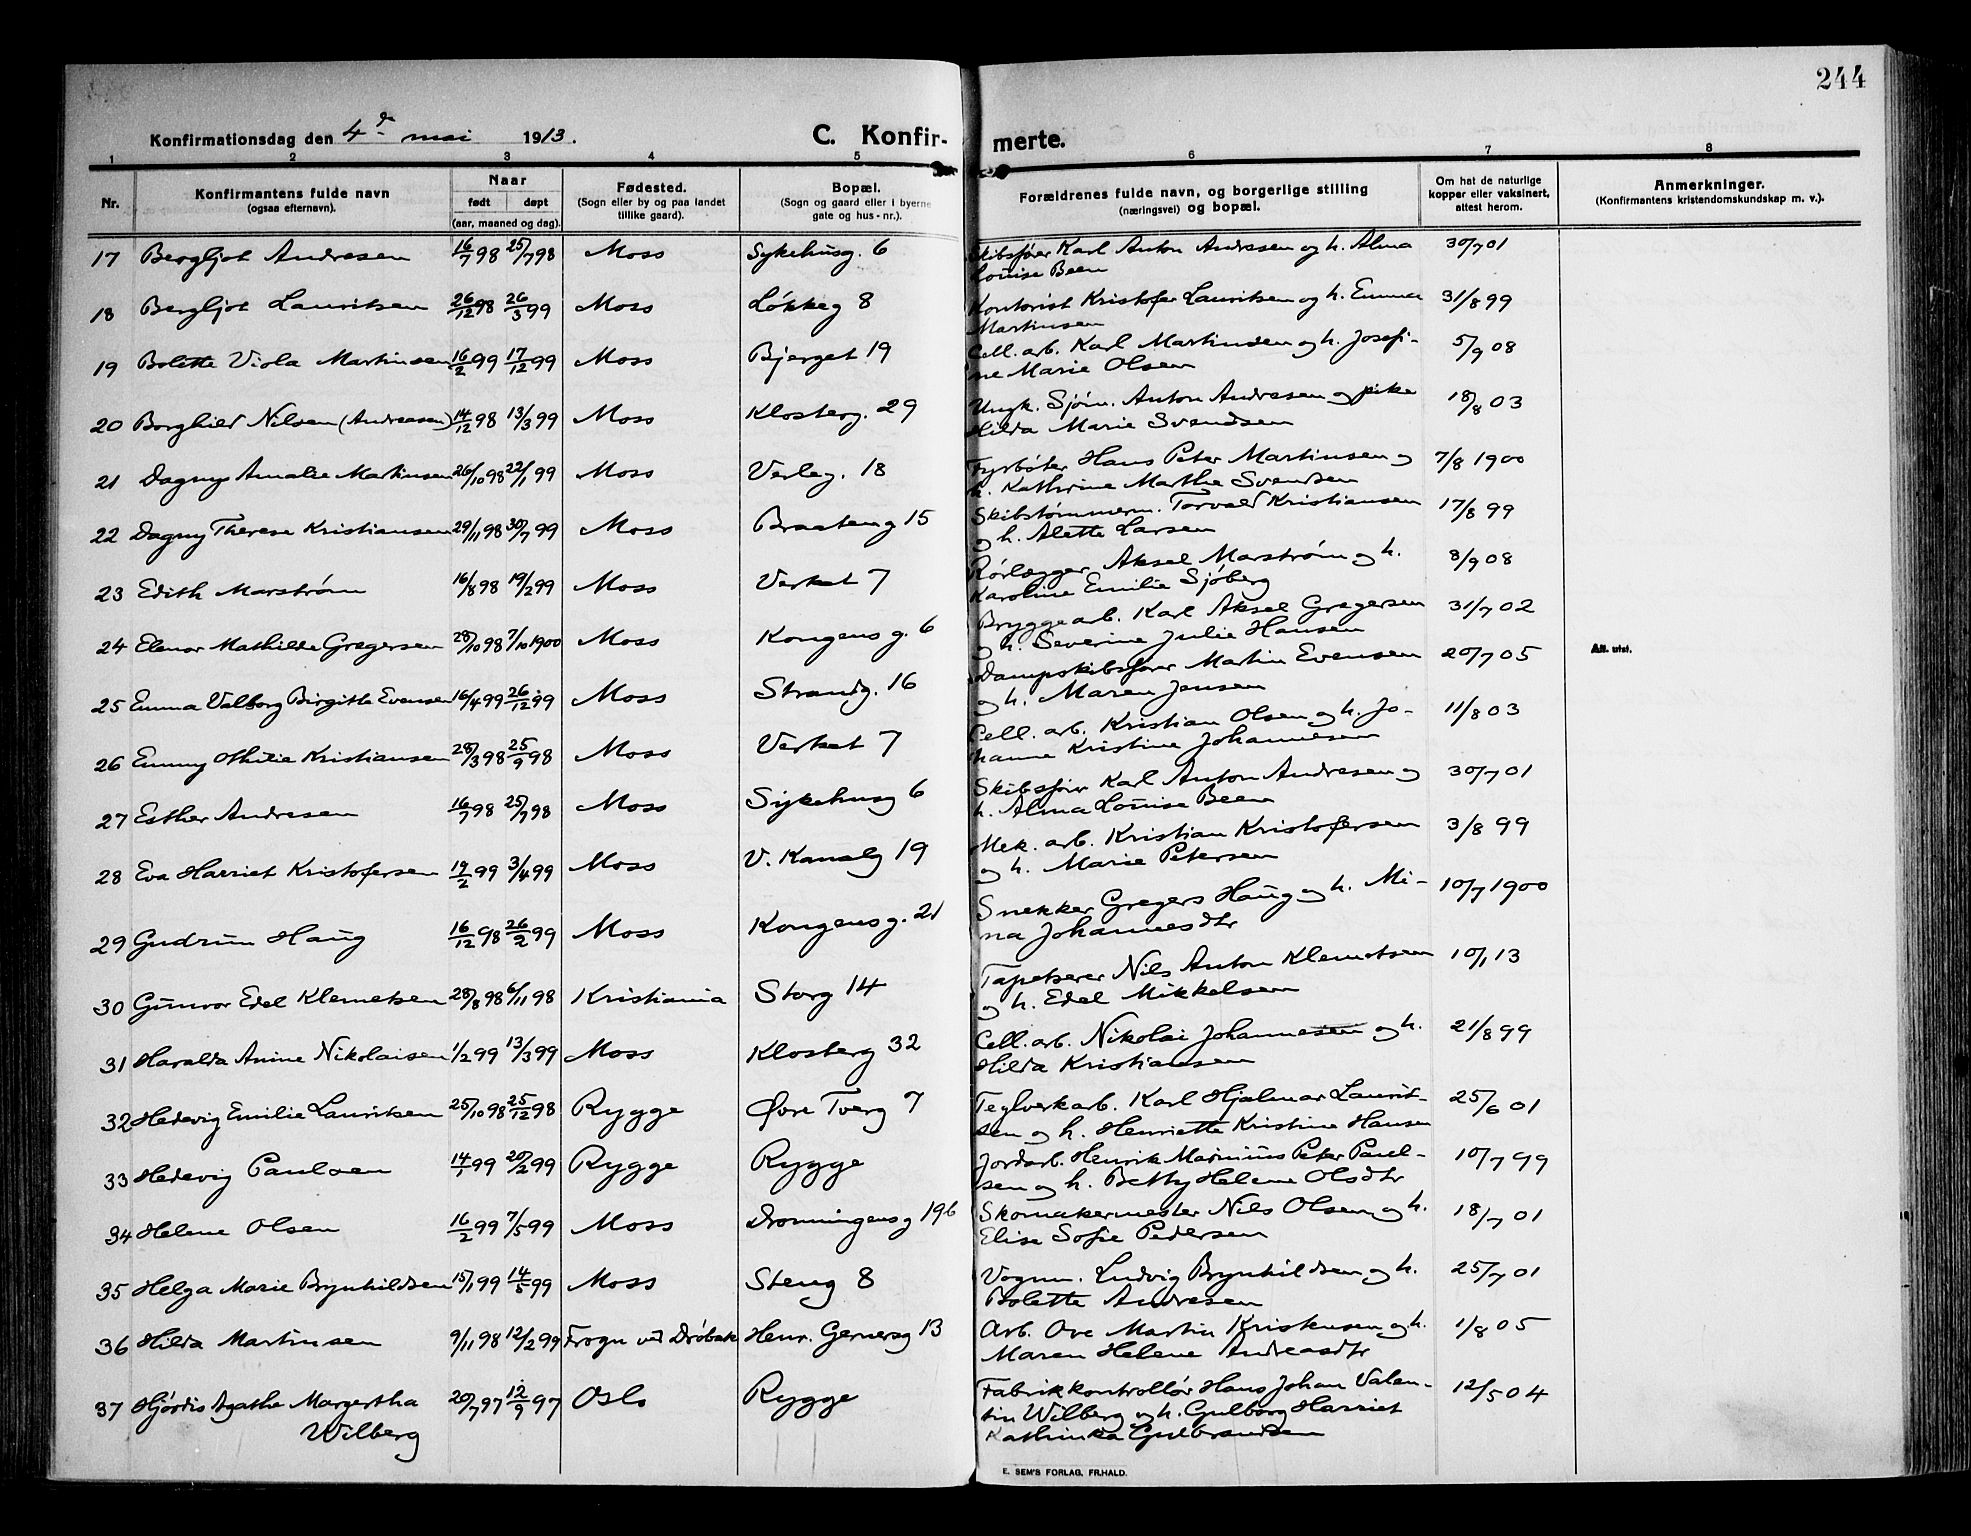 244
Konfirmationsdag den 4de mai 1913.
C. Konfir-
merte.
1 2 3 4 5 6 7 8
Nr.
Konfirmantens fulde navn
(ogsaa efternavn).
Naar
født døpt
(aar, maaned og dag).
Fødested.
(Sogn eller by og paa landet
tillike gaard).
Bopæl.
(Sogn og gaard eller i byerne
gate og hus-nr.).
Forældrenes fulde navn, og borgerlige stilling
(næringsvei) og bopæl.
Om hat de naturlige
kopper eller vaksinert,
attest herom.
Anmerkninger.
(Konfirmantens kristendomskundskap m. v.).
17 Bergljot Andresen 16/7 98 25/7 98 Moss Sykehusg. 6 Skibsfører Karl Anton Andresen og h. Alma 30/7 01
Louise Been
18 Bergljot Lauritsen 26/12 98 26/3 99 Moss Løkkeg 8 Kontorist Kristofer Lauritsen og h. Emma 31/8 99
Martinsen
19 Bolette Viola Martinsen 16/2 99 17/12 99 Moss Bjerget 19 Cell. arb. Karl Martinsen og h. Josefi- 5/9 08
ne Marie Olsen
20 Borghild Nilsen (Andreasen) 14/12 98 13/3 99 Moss Klosterg. 29 Ungk. Sjøm. Anton Andresen og pike 18/8 03
Hilda Marie Svendsen
21 Dagny Amalie Martinsen 26/10 98 22/1 99 Moss Verleg. 18 Fyrbøter Hans Peter Martinsen og 7/8 1900
h. Kathrine Marthe Svendsen
22 Dagny Therese Kristiansen 29/11 98 30/7 99 Moss Braateng 15 Skibstømmerm. Torvald Kristiansen 17/8 99
og h. Alette Larsen
23 Edith Marstrøm 16/8 98 19/2 99 Moss Verket 7 Rørlægger Aksel Marstrøm og h. 8/9 08
Karoline Emilie Sjøberg
24 Elenor Mathilde Gregersen 28/10 98 7/10 1900 Moss Kongens g. 6 Bryggearb. Karl Aksel Gregersen 31/7 02
og h. Severine Julie Hansen
25 Emma Valborg Birgitte Evensen 16/4 99 26/12 99 Moss Strandg. 16 Dampskibsfører Martin Evensen 20/7 05 Att. utst.
og h. Maren Jensen
26 Emmy Othilie Kristiansen 28/3 98 25/9 98 Moss Verket 7 Cell. arb. Kristian Olsen og h. Jo- 11/8 03
hanne Kristine Johannesen
27 Esther Andresen 16/7 98 25/7 98 Moss Sykehusg 6 Skibsfører Karl Anton Andresen og 30/7 01
h. Alma Louise Been
28 Eva Harriet Kristofersen 19/2 99 3/4 99 Moss V. Kanalg 19 Mek. arb. Kristian Kristofersen 3/8 99
og h. Marie Petersen
29 Gudrun Haug 16/12 98 26/2 99 Moss Kongens g. 21 Snekker Gregers Haug og h. Mi- 10/7 1900
na Johannesdtr
30 Gunvor Edel Klemetsen 28/8 98 6/11 98 Kristiania Storg 14 Tapetserer Nils Anton Klemetsen 10/1 13
og h. Edel Mikkelsen
31 Haralda Anine Nikolaisen 1/2 99 13/3 99 Moss Klosterg 32 Cell. arb. Nikolai Johannesen og h. 21/8 99
Hilda Kristiansen
32 Hedevig Emilie Lauritsen 25/10 98 25/12 98 Rygge Øvre Tverg 7 Teglverkarb. Karl Hjalmar Laurit- 25/6 01
sen og h. Henriette Kristine Hansen
33 Hedevig Paulsen 14/1 99 20/2 99 Rygge Rygge Jordarb. Henrik Marinius Peter Paul- 10/7 99
sen og h. Betty Helene Olsdtr
34 Helene Olsen 16/2 99 7/5 99 Moss Dronningensg 196 Skomakermester Nils Olsen og h. 18/7 01
Elise Sofie Pedersen
35 Helga Marie Brynhildsen 15/1 99 14/5 99 Moss Steng 8 Vognm. Ludvig Brynhildsen og h. 25/7 01
Bolette Andresen
36 Hilda Martinsen 9/11 98 12/2 99 Frogn ved Drøbak Henr. Gernersg 13 Arb. Ove Martin Kristensen og h. 1/8 05
Maren Helene Andreasdtr
37 Hjørdis Agathe Margertha 20/7 97 12/9 97 Oslo Rygge Fabrikkontrollør Hans Johan Valen- 12/5 04
Wilberg tin Wilberg og h. Gulborg Harriet
Kathinka Gulbrandsen
E. SEM'S FORLAG, FR.HALD.